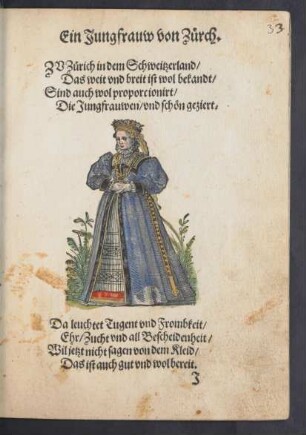 33
Ein Jungfrauw von Zürch.
ZV Zürich in dem Schweitzerland/
Das weit vnd breit ist wol bekandt/
Sind auch wol proporcionirt/
Die Jungfrauwen/vnd schön geziert.
Da leuchtet Tugent vnd Frombkeit/
Ehr/Zucht vnd all Bescheidenheit/
Wil jetzt nicht sagen von dem Kleid/
Das ist auch gut vnd wolbereit.
J